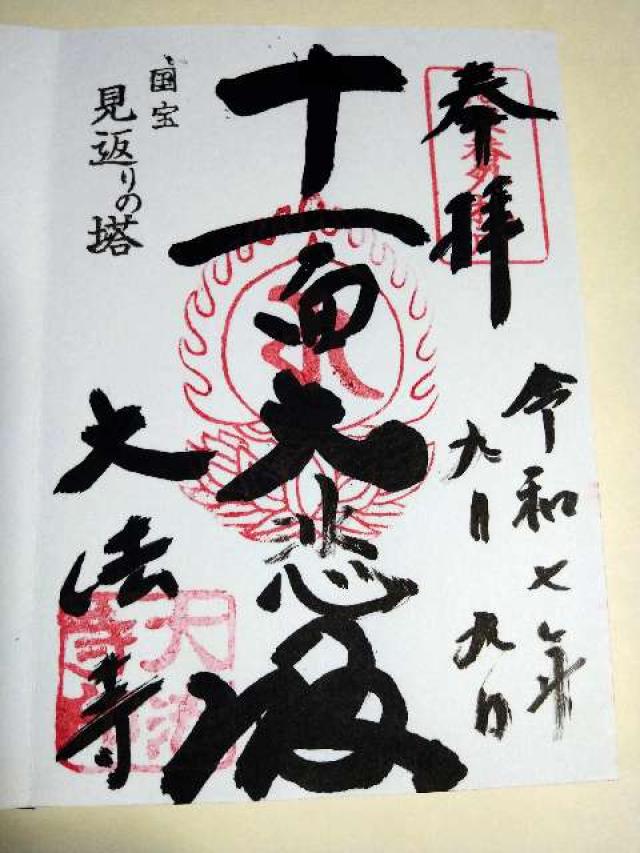 奉拝
令和七年
九月九日
十一面大悲殿
国宝
見返りの塔
大法寺